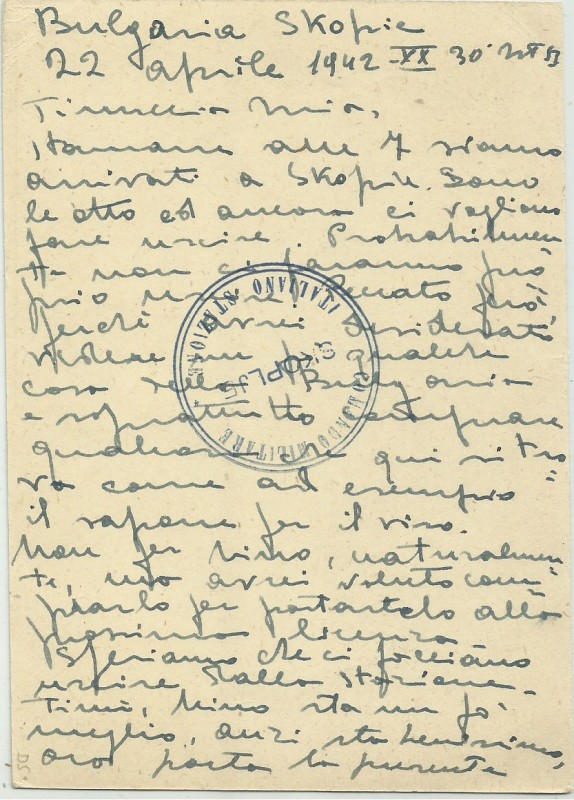 Bulgaria Skopie
22 aprile 1942 -XX 30
mia,
stamane alle 7 siamo
arrivati a Skopie. Sono
le otto ed ancora ci vogliono
fare uscire. Probabilmen
te non ci faranno pro
prio uscire. Peccato però
perchè avrei desiderato
vedere un po' qualche
cosa della Bulgaria
e soprattutto comprare
qualcosa che qui si tro=
va come ad esempio
il sapone per il viso.
Non per Nino, naturalmen
te, ma avrei voluto com=
prarlo per portartelo alla
prossima licenza
Speriamo che ci facciano
uscire dalla stazione.
Timi, Nino sta un po'
meglio, anzi sta benissimo,
ora porta la presente
COMANDO MILITARE ITALIANO STAZIONE
SKOPLJE